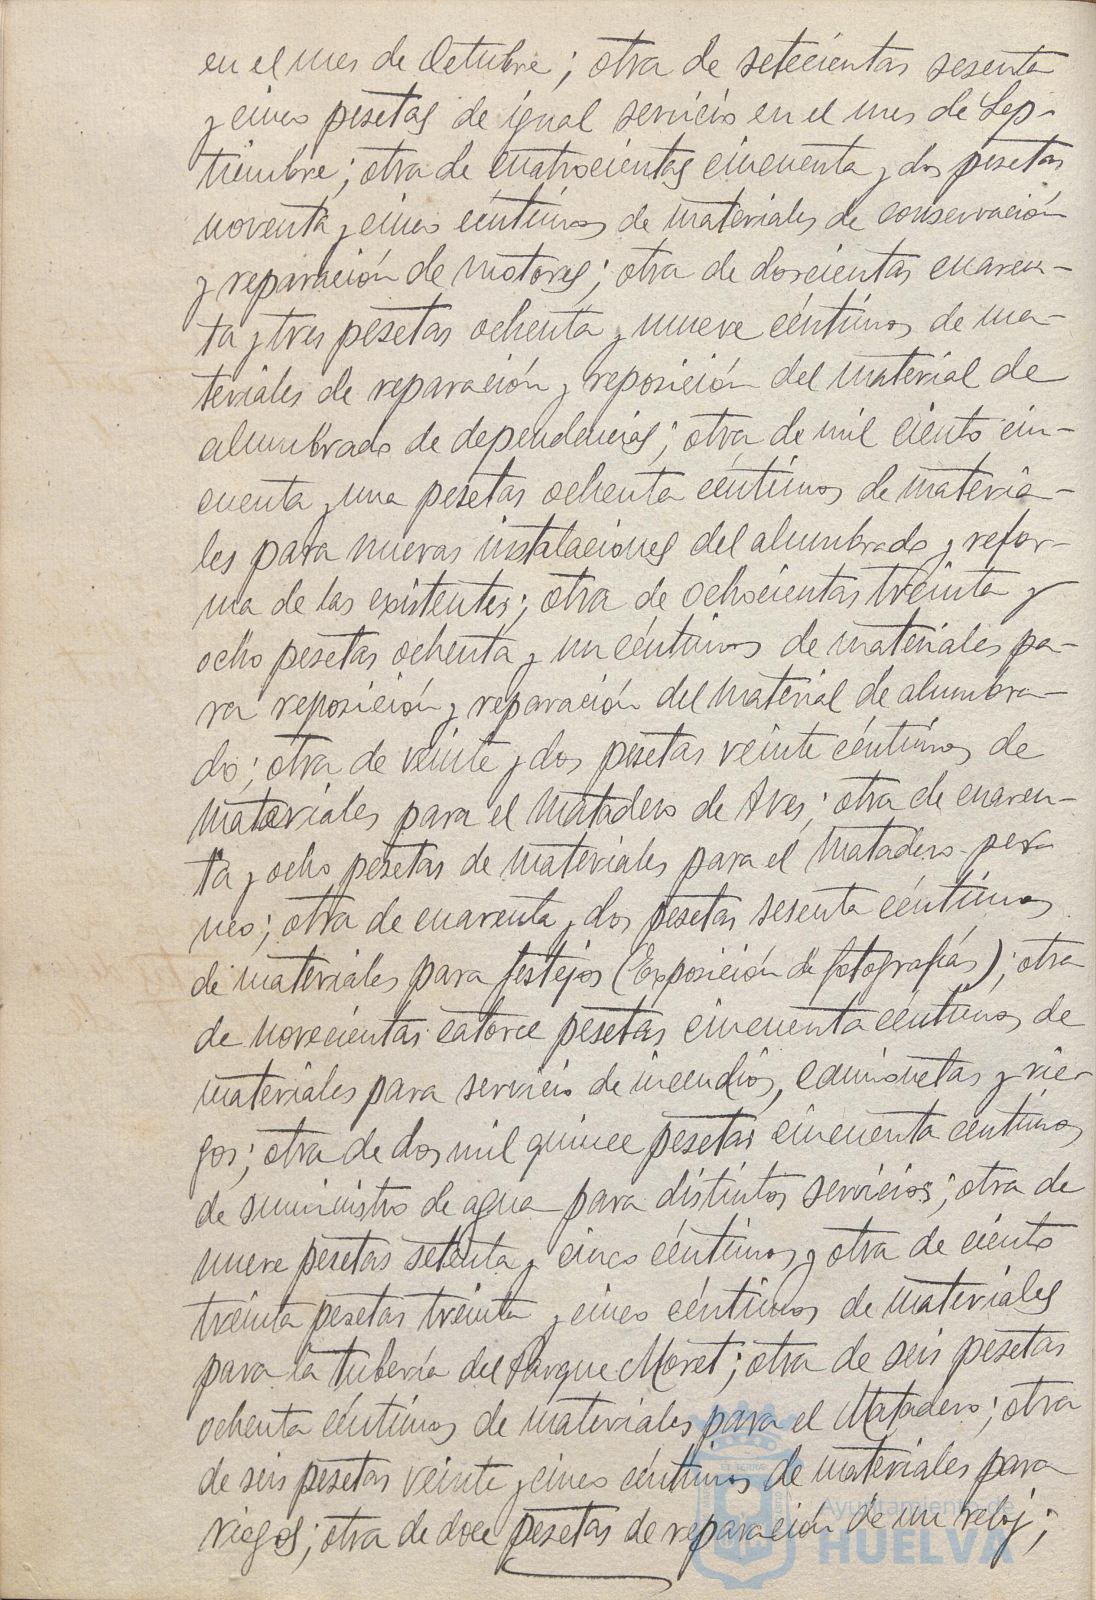 en el mes de Octubre; otra de setecientas sesenta
y cinco pesetas de igual servicio en el mes de Sep-
tiembre; otra de cuatrocientas cincuenta y dos pesetas
noventa y cinco céntimos de materiales de conservación
y reparación de motores; otra de doscientas cuaren-
ta y tres pesetas ochenta y nueve céntimos de ma-
teriales de reparación y reposición del material de
alumbrado de dependencias; otra de mil ciento cin-
cuenta y una pesetas ochenta céntimos de materia-
les para nuevas instalaciones del alumbrado y refor-
ma de las existentes; otra de ochocientas treinta y
ocho pesetas ochenta y un céntimos de materiales pa-
ra reposición y reparación del material de alumbra-
do; otra de veinte y dos pesetas veinte céntimos de
materiales para el Matadero de Aves; otra de cuaren-
ta y ocho pesetas de materiales para el Matadero-perre
neo; otra de cuarenta y dos pesetas sesenta céntimos
de materiales para festejos (Exposición de fotografías); otra
de novecientas catorce pesetas cincuenta céntimos de
materiales para servicio de incendios, camionetas y rie-
gos; otra de dos mil quince pesetas cincuenta centimos
de suministro de agua para distintos servicios; otra de
nueve pesetas setenta y cinco céntimos y otra de ciento
treinta pesetas treinta y cinco céntimos de materiales
para la tubería del Parque Moret; otra de seis pesetas
ochenta céntimos de materiales para el Matadero; otra
de seis pesetas veinte y cinco céntimos de materiales para
riegos; otra de doce pesetas de reparación de un reloj;
Ayuntamiento de
HUELVA